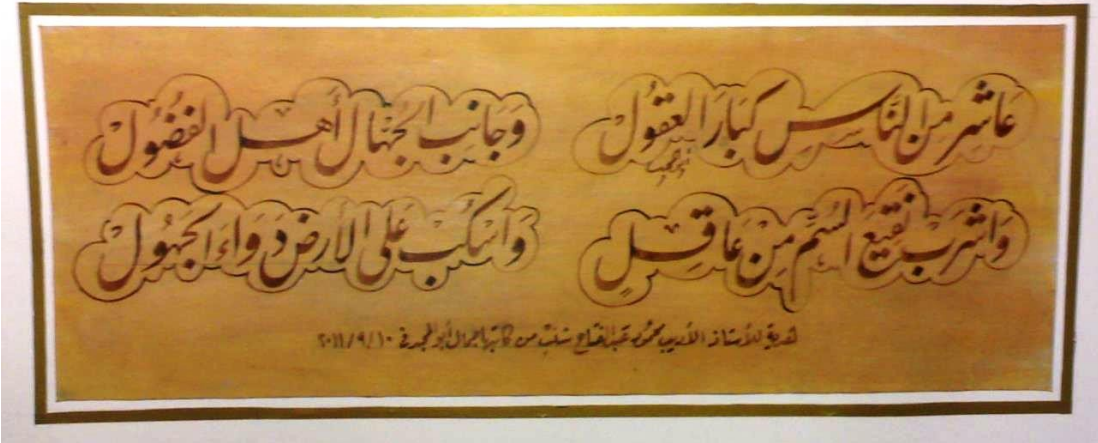 عَاشِر مِنَ النَّاسِ كِبَارَ العُقُولْ وَجَانِبِ الجُهَّالَ أَهْلَ الفُضُولْ
وَاشْرَبْ نَقِيعَ السُّمِّ مِنْ عَاقِلٍ وَاسْكُبْ عَلَى الأَرْضِ دَوَاءَ الجَهُولْ
هدية للأستاذ الأديب محمود عبد الفتاح من كاتبها جمال أبو المجد في ١٠/٩/٢٠١١